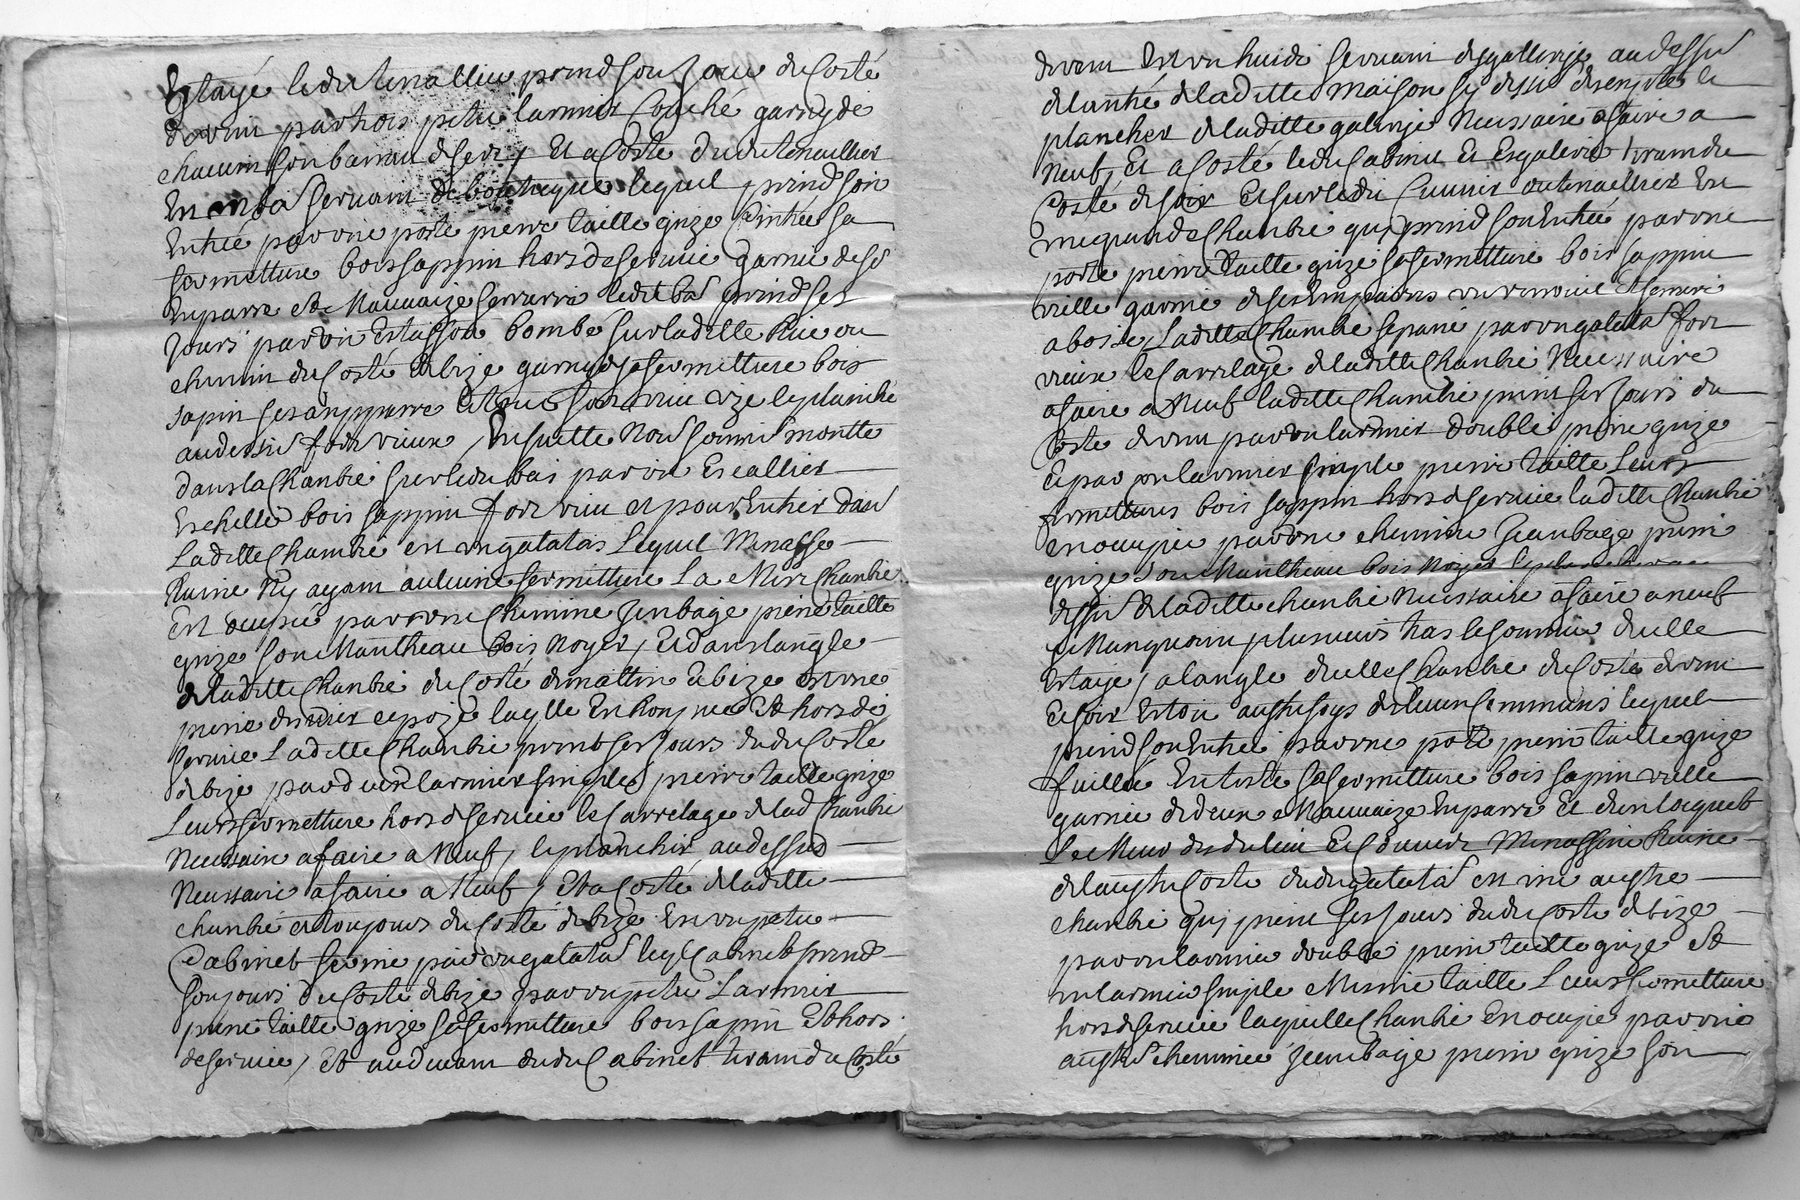 Estayé ledit tenallier prend son jour du costé
de vent par trois petits larmier couché garny de
chacun son barreau de fer, Et a costé dudit tenaillier
En un bas servant de boutheque lequel prend son
Entrée par vne porte pierre taille grize Ceintrée sa
fermetture bois sappin hors de service garnie de ses
Emparre et Mauvaize serrure ledit bas prend ses
Jours par vn bombé sur laditte Rue ou
chemin du Costé de bize garny de sa fermetture bois
sapin ses emparre le plancher
audessus fort vieux, Ensuitte Nous sommes montté
dans la Chambre sur ledit bas par vn Escallier
Eschelle bois sappin fort vieux et pour Entrer dans
Laditte Chambre est un galatas Lequel Menasse
Ruine Ny ayant aulcune fermetture La Mere Chambre
Est occupée par vne Cheminé Jeanbage pierre taille
grize son Mantheau bois Noyer, Et dans langle
de laditte Chambre du Costé de mattin et bize est vne
pierre devier Enrompue et hors de
service Laditte Chambre prend ses Jours dudit Costé
de bize par deux larmier simples pierre taille grize
Leurs fermetture hors de service le Carrelage de lad Chambre
Necessaire a faire a Neuf, le plancher audessus
Necessaire a faire a Neuf, Et a Costé de laditte
chambre et toujours du Costé de bize Est vn petit
Cabinet fermé par vn galatas leq Cabinet prend
son jours du Costé de bize par vn petit Larmier
pierre taille grize sa fermetture bois sapin et hors
de service, Et audevant dudit Cabinet tirant du Costé
de vent Est vn huide servant de gallerie au dessus
de lantrée de laditte Maison sy dessus désignée le
plancher de laditte galerie Necessaire a faire a
Neuf, Et a Costé ledit Cabinet Et Esgalerie tirant du
Costé de soir Et sur ledit Cuvier ou tenaillier Est
vne grande Chambre quy prend son Entrée par vne
porte pierre taille grize sa fermetture bois sappin
vielle garnie de ses Emparres vn verrouil Et serrure
a bosse, Laditte Chambre séparé par vn galatas fort
vieux le Carrelage de laditte Chambre Necessaire
a faire a Neuf laditte Chambre prend ses Jours du
Costé de vent par vn larmier double pierre grize
Et par vn larmier simple pierre taille Leurs
fermettures bois sappin hors de service laditte Chambre
en occupée par vne cheminée Jeanbage pierre
grize son Mantheau bois Noyer le plancher au
dessus de laditte chambre Necessaire a faire a neuf
y Manquant plusieurs tras le sommier dicelle
Estayé, a langle dicelle Chambre du Costé de vent
Et soir lequel
prend son Entrée par vne porte pierre taille grize
sa fermetture bois sapin vielle
garnie de deux Mauvaize Emparre Et dun locquet
Le Meur dudit lieu Et Menassant Ruine
de laustre Costé dudit galatas est vne austre
chambre quy prend ses Jours dudit Costé de bize
par vn larmier double pierre taille grize et
vn larmier simple Mesme taille Leurs fermetture
hors de service laquelle Chambre En occupée par vne
austre cheminée Jeanbage pierre grize son